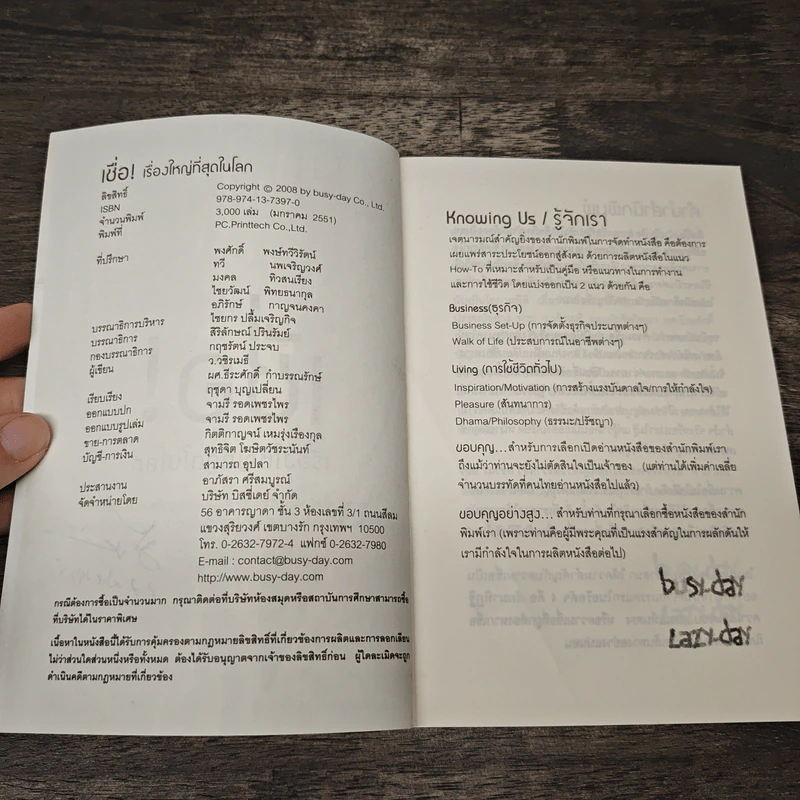 เชื่อ! เรื่องใหญ่ที่สุดในโลก
ลิขสิทธิ์ Copyright © 2008 by busy-day Co., Ltd.
ISBN 978-974-13-7397-0
จำนวนพิมพ์ 3,000 เล่ม (มกราคม 2551)
พิมพ์ที่ PC.Printtech Co.,Ltd.
ที่ปรึกษา พงศ์ศักดิ์ พงษ์ทวีวิรัตน์
ทวี นพเจริญวงศ์
มงคล ทิวสนเรียง
ไชยวัฒน์ พิทยธนากุล
อภิรักษ์ กาญจนคงคา
ไชยกร ปลื้มเจริญกิจ
บรรณาธิการบริหาร สิริลักษณ์ ปรินรัมย์
บรรณาธิการ กฤชรัตน์ ประจบ
กองบรรณาธิการ ว.วชิรเมธี
ผู้เขียน ผศ.ธีระศักดิ์ กำบรรณรักษ์
ฤชุตา บุญเปลี่ยน
เรียบเรียง จามรี รอดเพชรไพร
ออกแบบปก จามรี รอดเพชรไพร
ออกแบบรูปเล่ม กิตติกาญจน์ เหมรุ่งเรืองกุล
ขาย-การตลาด สุทธิจิต โฆษิตวัชระนันท์
บัญชี-การเงิน สามารถ อุปลา
ประสานงาน อาภัสรา ศรีสมบูรณ์
จัดจำหน่ายโดย บริษัท บิสซี่เดย์ จำกัด
56 อาคารญาดา ชั้น 3 ห้องเลขที่ 3/1 ถนนสีลม
แขวงสุริยวงศ์ เขตบางรัก กรุงเทพฯ 10500
โทร. 0-2632-7972-4 แฟกซ์ 0-2632-7980
E-mail : contact@busy-day.com
http://www.busy-day.com
กรณีต้องการซื้อเป็นจำนวนมาก กรุณาติดต่อที่บริษัทห้องสมุดหรือสถาบันการศึกษาสามารถซื้อ
ที่บริษัทได้ในราคาพิเศษ
เนื้อหาในหนังสือนี้ได้รับการคุ้มครองตามกฎหมายลิขสิทธิ์ที่เกี่ยวข้องการผลิตและการลอกเลียน
ไม่ว่าส่วนใดส่วนหนึ่งหรือทั้งหมด ต้องได้รับอนุญาตจากเจ้าของลิขสิทธิ์ก่อน ผู้ใดละเมิดจะถูก
ดำเนินคดีตามกฎหมายที่เกี่ยวข้อง
Knowing Us / รู้จักเรา
เจตนารมณ์สำคัญยิ่งของสำนักพิมพ์ในการจัดทำหนังสือ คือต้องการ
เผยแพร่สาระประโยชน์ออกสู่สังคม ด้วยการผลิตหนังสือในแนว
How-To ที่เหมาะสำหรับเป็นคู่มือ หรือแนวทางในการทำงาน
และการใช้ชีวิต โดยแบ่งออกเป็น 2 แนว ด้วยกัน คือ
Business(ธุรกิจ)
Business Set-Up (การจัดตั้งธุรกิจประเภทต่างๆ)
Walk of Life (ประสบการณ์ในอาชีพต่างๆ)
Living (การใช้ชีวิตทั่วไป)
Inspiration/Motivation (การสร้างแรงบันดาลใจ/การให้กำลังใจ)
Pleasure (สันทนาการ)
Dhama/Philosophy (ธรรมะ/ปรัชญา)
ขอบคุณ...สำหรับการเลือกเปิดอ่านหนังสือของสำนักพิมพ์เรา
ถึงแม้ว่าท่านจะยังไม่ตัดสินใจเป็นเจ้าของ (แต่ท่านได้เพิ่มค่าเฉลี่ย
จำนวนบรรทัดที่คนไทยอ่านหนังสือไปแล้ว)
ขอบคุณอย่างสูง... สำหรับท่านที่กรุณาเลือกซื้อหนังสือของสำนัก
พิมพ์เรา (เพราะท่านคือผู้มีพระคุณที่เป็นแรงสำคัญในการผลักดันให้
เรามีกำลังใจในการผลิตหนังสือต่อไป)
busy-day
Lazy-day